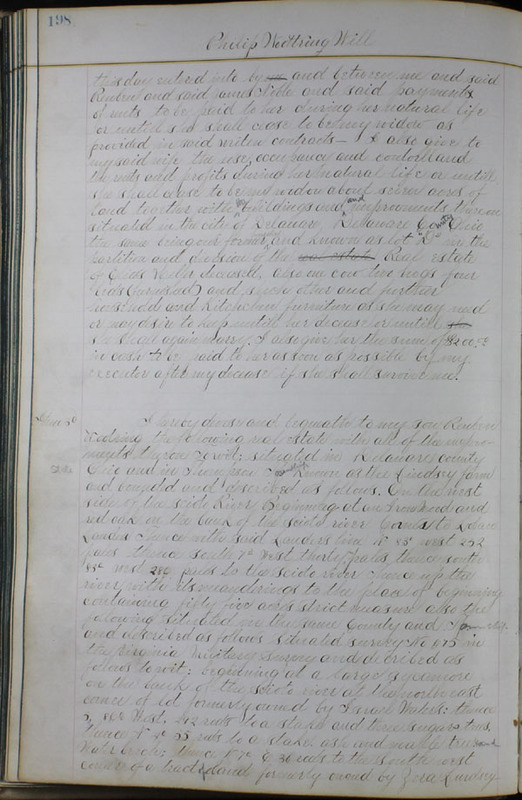 198
Philip Wottring Will
this day entered into by and between me and said
Reuben and said James Sible and said payments
of rents to be paid to her during her natural life
or until she shall cease to be my widow as
provided in said writen contracts - I also give to
my said wife the use, occupancy and control and
the rents and profits during her natural life or untill
she shall cease to be my widow about seven acres of
land together with my buildings and and improvements thereon
situated in the city of Delaware, Delaware County Ohio
the same being our former and known as lot "D" in the
partition and division of the real estate Real estate
of decased, also one cow two hogs four
Beds (furnished) and such other and further
household and Kitchen furniture as she may need
or may desire to keep untill her decease or untill she
she shall again marry. I also give her the sum of $200.00
in cash to be paid to her as soon as possible by my
executor after my decease if she shall survive me.
Item
I hereby devise and bequeath to my son Reuben
Wottring the following real estate with all of the improve-
ments thereon to wit: situated in Delaware county
Ohio and in Thompson known as the Lindsey farm
and bounded and described as follows. On the west
side of the Scioto River Beginning at an Ironwood and
red oak on the bank of the scioto river Corner to
Landes thence with said Landers line N 88° west 252
poles thence south 7° West thirty poles thence south
88° east 280 poles to the scioto river thence up the
river with its meanderings to the place of beginning
containing fifty five acres strict measure also the
following situated in the same County and Township
and described as follows situated survey No in
the Virginia Military Survey and described as
follows to wit; beginning at a large sycamore
on the bank of the scioto river at the north east
corner of lot formerly owned by Waters: thence
West, 242 rods to a stake and three sugar trees
thence N rods to a stake ash and maple trees and
Water beech; thence E 30 rods to the south west
corner of a tract of land formerly owned by Lindsey